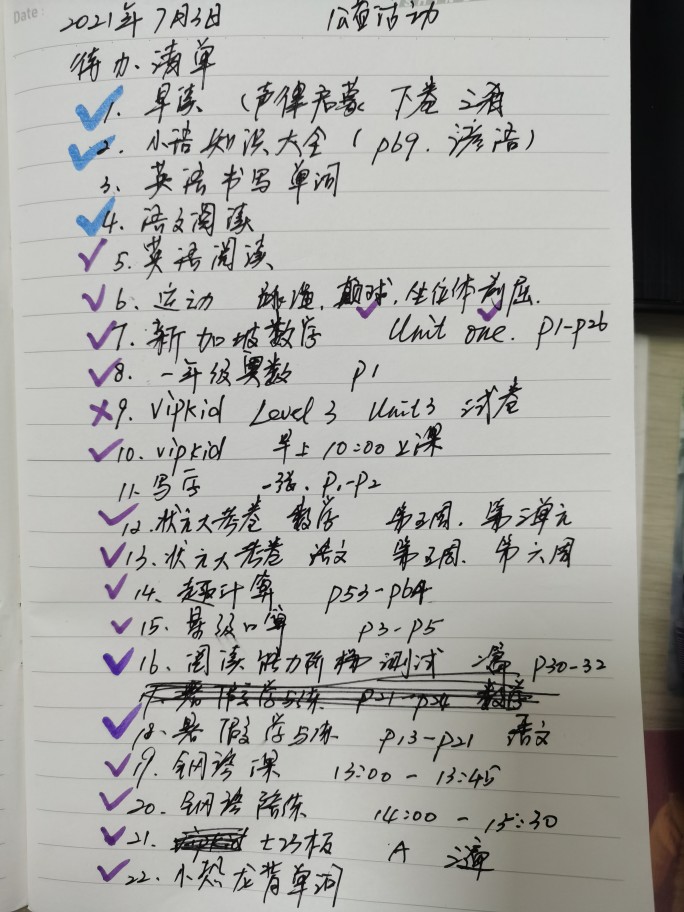 Date:
2021年7月3日 公益活动
待办清单
1. 早读 (声律启蒙 下卷 二萧
2. 小语知识大全 (p69. 谚语)
3. 英语书写单词
4. 语文阅读
5. 英语阅读
6. 运动 跳绳. 颠球. 坐位体前屈.
7. 新加坡数学 Unit one. p1-p26
8. 一年级奥数 p1
9. vipkid Level 3 Unit3 试卷
10. vipkid 早上10:00上课
11. 写字 一张. p1-p2
12. 状元大考卷 数学 第五周. 第三单元
13. 状元大考卷 语文 第五周. 第六周
14. 趣计算 p53-p64
15. 星级口算 p3-p5
16. 阅读能力阶梯测试 p30-32
暑假学与练 p21-p24 数学
18. 暑假学与练 p13-p21 语文
19. 钢琴课 13:00-13:45
20. 钢琴陪练 14:00-15:30
21. 七巧板 A
22. 小恐龙背单词